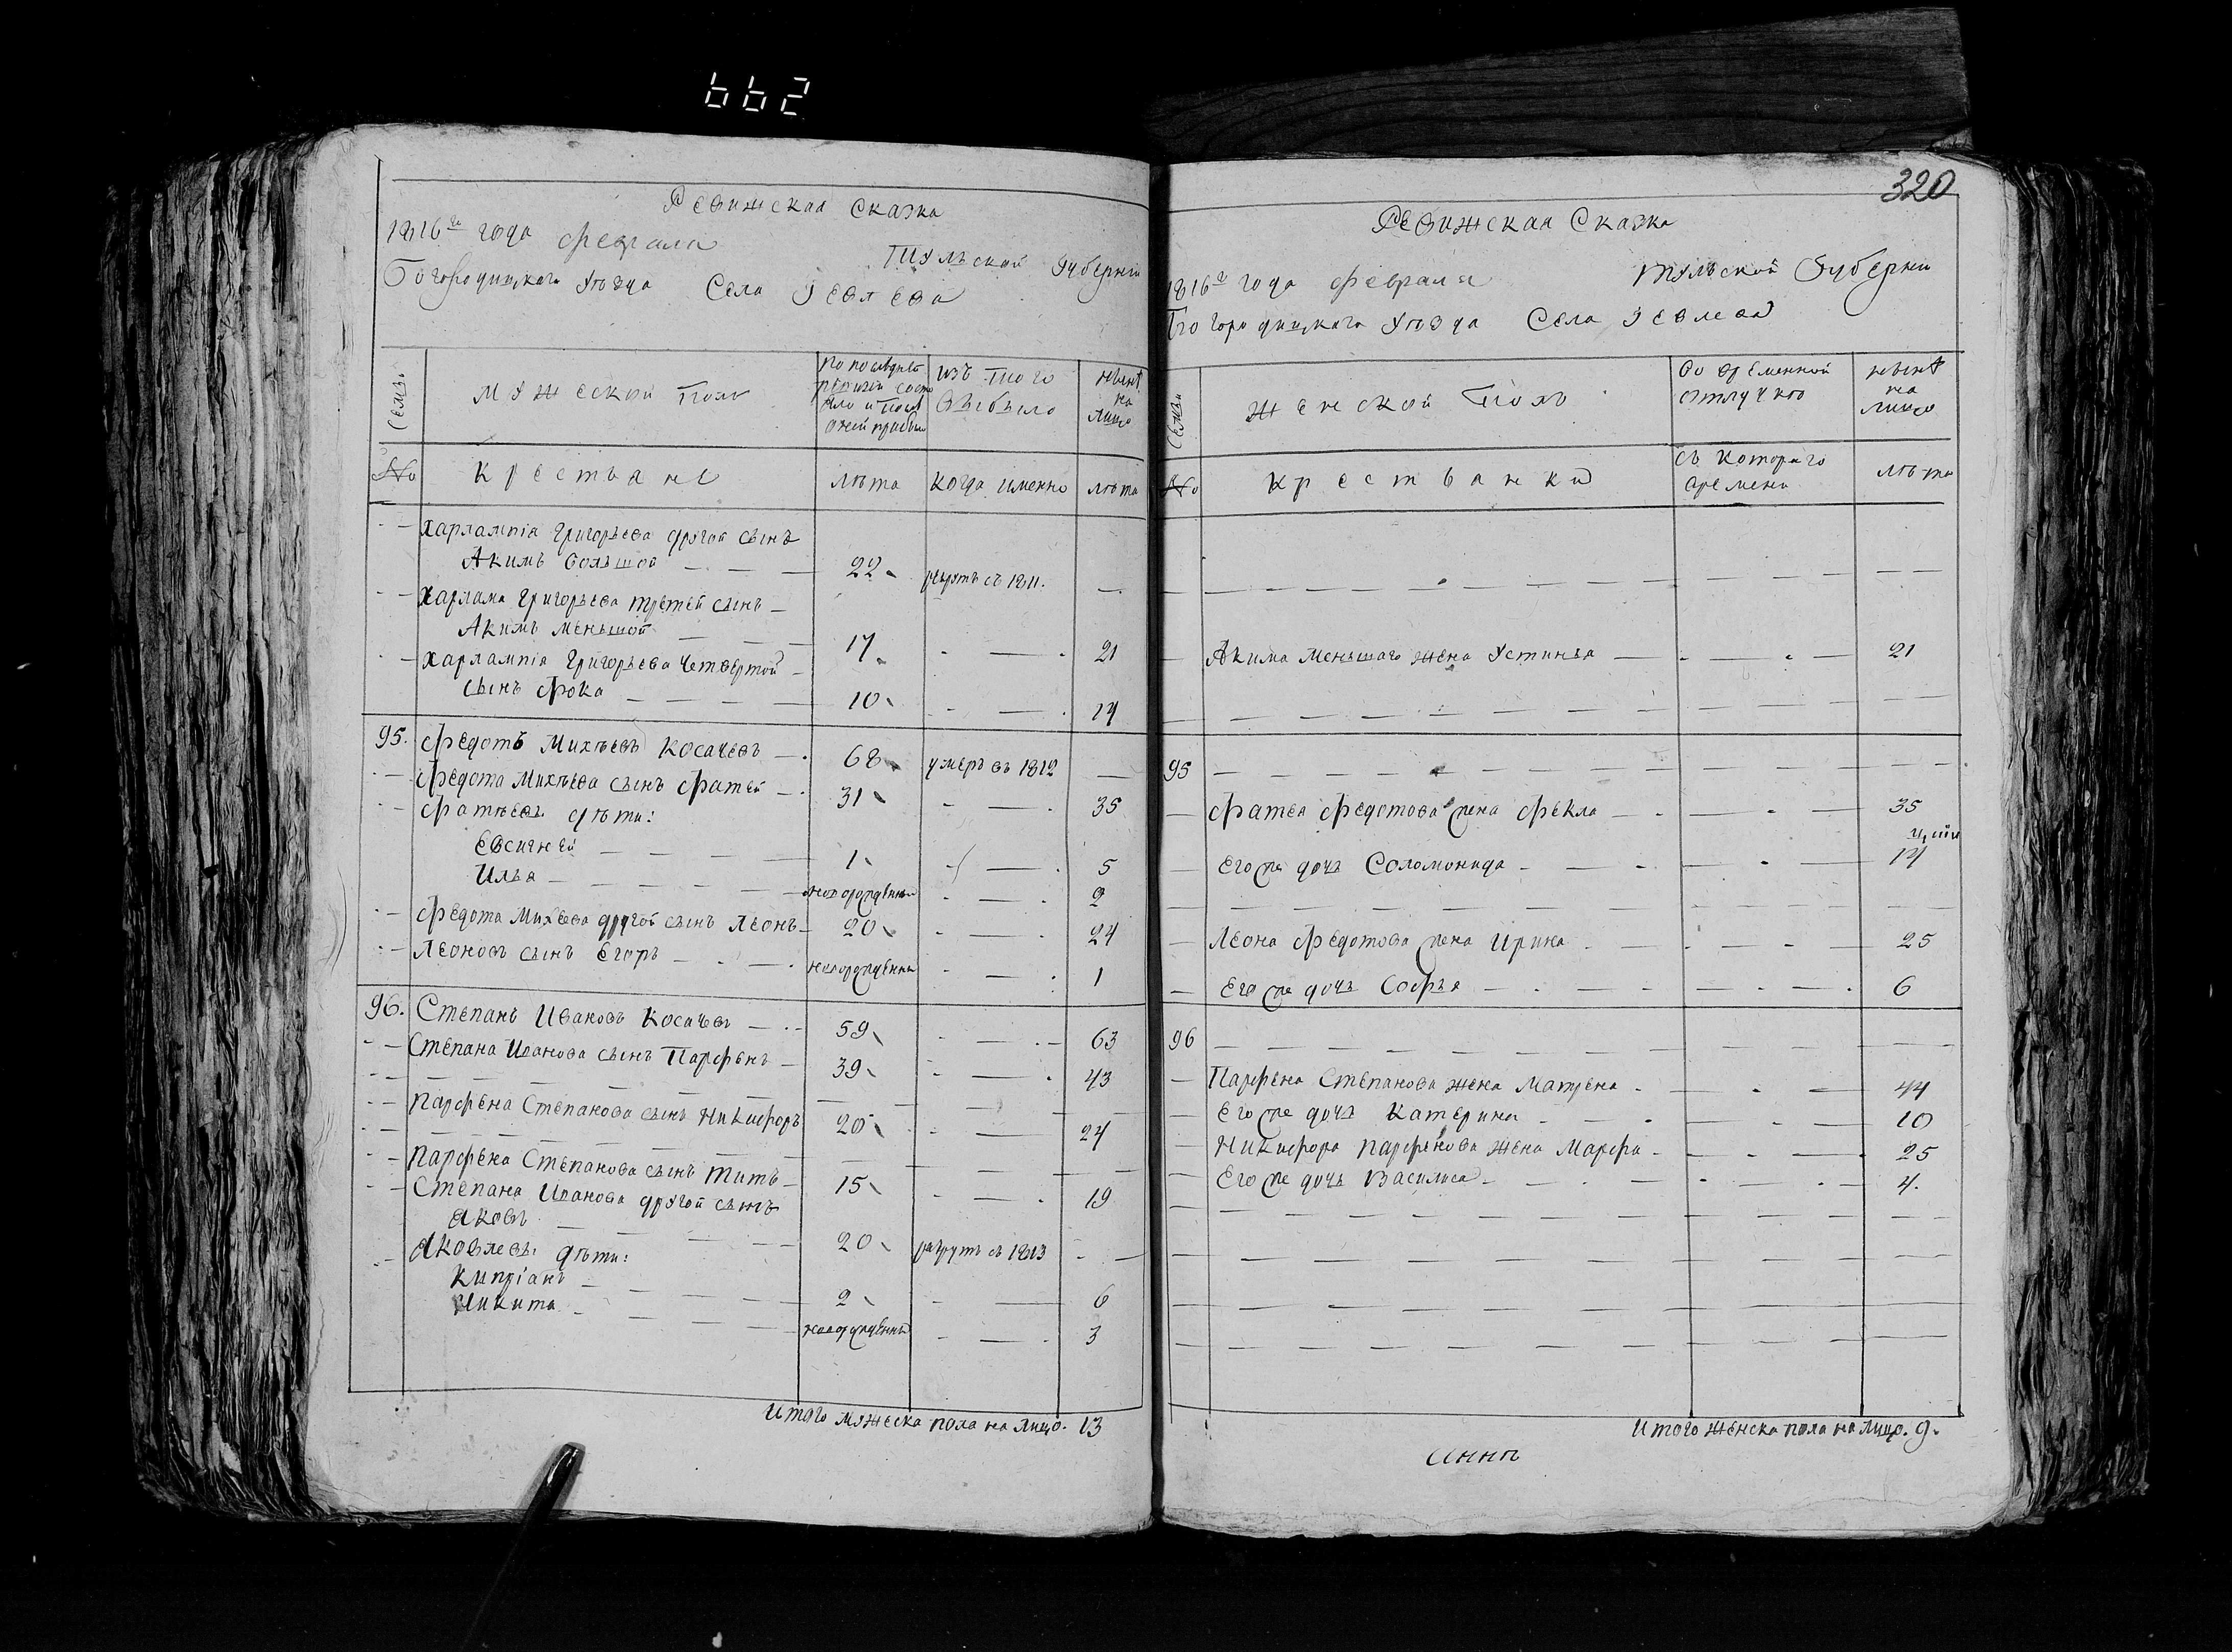 662
Ревижская Сказка
1816го года февраля Тульской Губерніи
Богородицкаго Уѣзда Села Іевлева
Семьи
Мужеской Полъ
По последней ревизіи состояло и после оной прибыло
Изъ того выбыло
Нынѣ на лицо
№
Крестьяне
лѣта
когда именно
лѣта
Харлампія Григорьева другой сынъ
Акимъ большой 22 рекрутъ съ 1811.
Харлама Григорьева третей сынъ
Акимъ меньшой 17 21
Харлампія Григорьева четвертой
сынъ Фока 10 14
95. Федотъ Михѣевъ Косачевъ 68 умеръ въ 1812
Федота Михѣева сынъ Фатей 31 35
Фатѣевы дѣти:
Евсигней 1 5
Илья новорожденный 2
Федота Михѣева другой сынъ Леонъ 20 24
Леоновъ сынъ Егоръ новорожденный 1
96. Степанъ Ивановъ Косачевъ 59 63
Степана Иванова сынъ Парфенъ 39 43
Парфена Степанова сынъ Никифоръ 20 24
Парфена Степанова сынъ Титъ 15 19
Степана Иванова другой сынъ
Яковъ 20 рекрутъ съ 1813
Яковлевы дѣти:
Кипріанъ 2 6
Никита новорожденный 3
Итого мужеска пола на лицо. 13
320
Ревижская Сказка
1816го года февраля Тульской Губерніи
Богородицкаго Уѣзда Села Іевлева
Семьи
Женской Полъ
Во временной отлучкѣ
Нынѣ на лицо
№
Крестьянки
съ котораго времени
лѣта
Акима меньшаго жена Устинья 21
95
Фатея Федотова жена Фекла 35
Его же дочь Соломонида 14
Леона Федотова жена Ирина 25
Его же дочь Софья 6
96
Парфена Степанова жена Матрена 44
Его же дочь Катерина 10
Никифора Парфенова жена Марфа 25
Его же дочь Василиса 4.
Итого женска пола на лицо. 9.